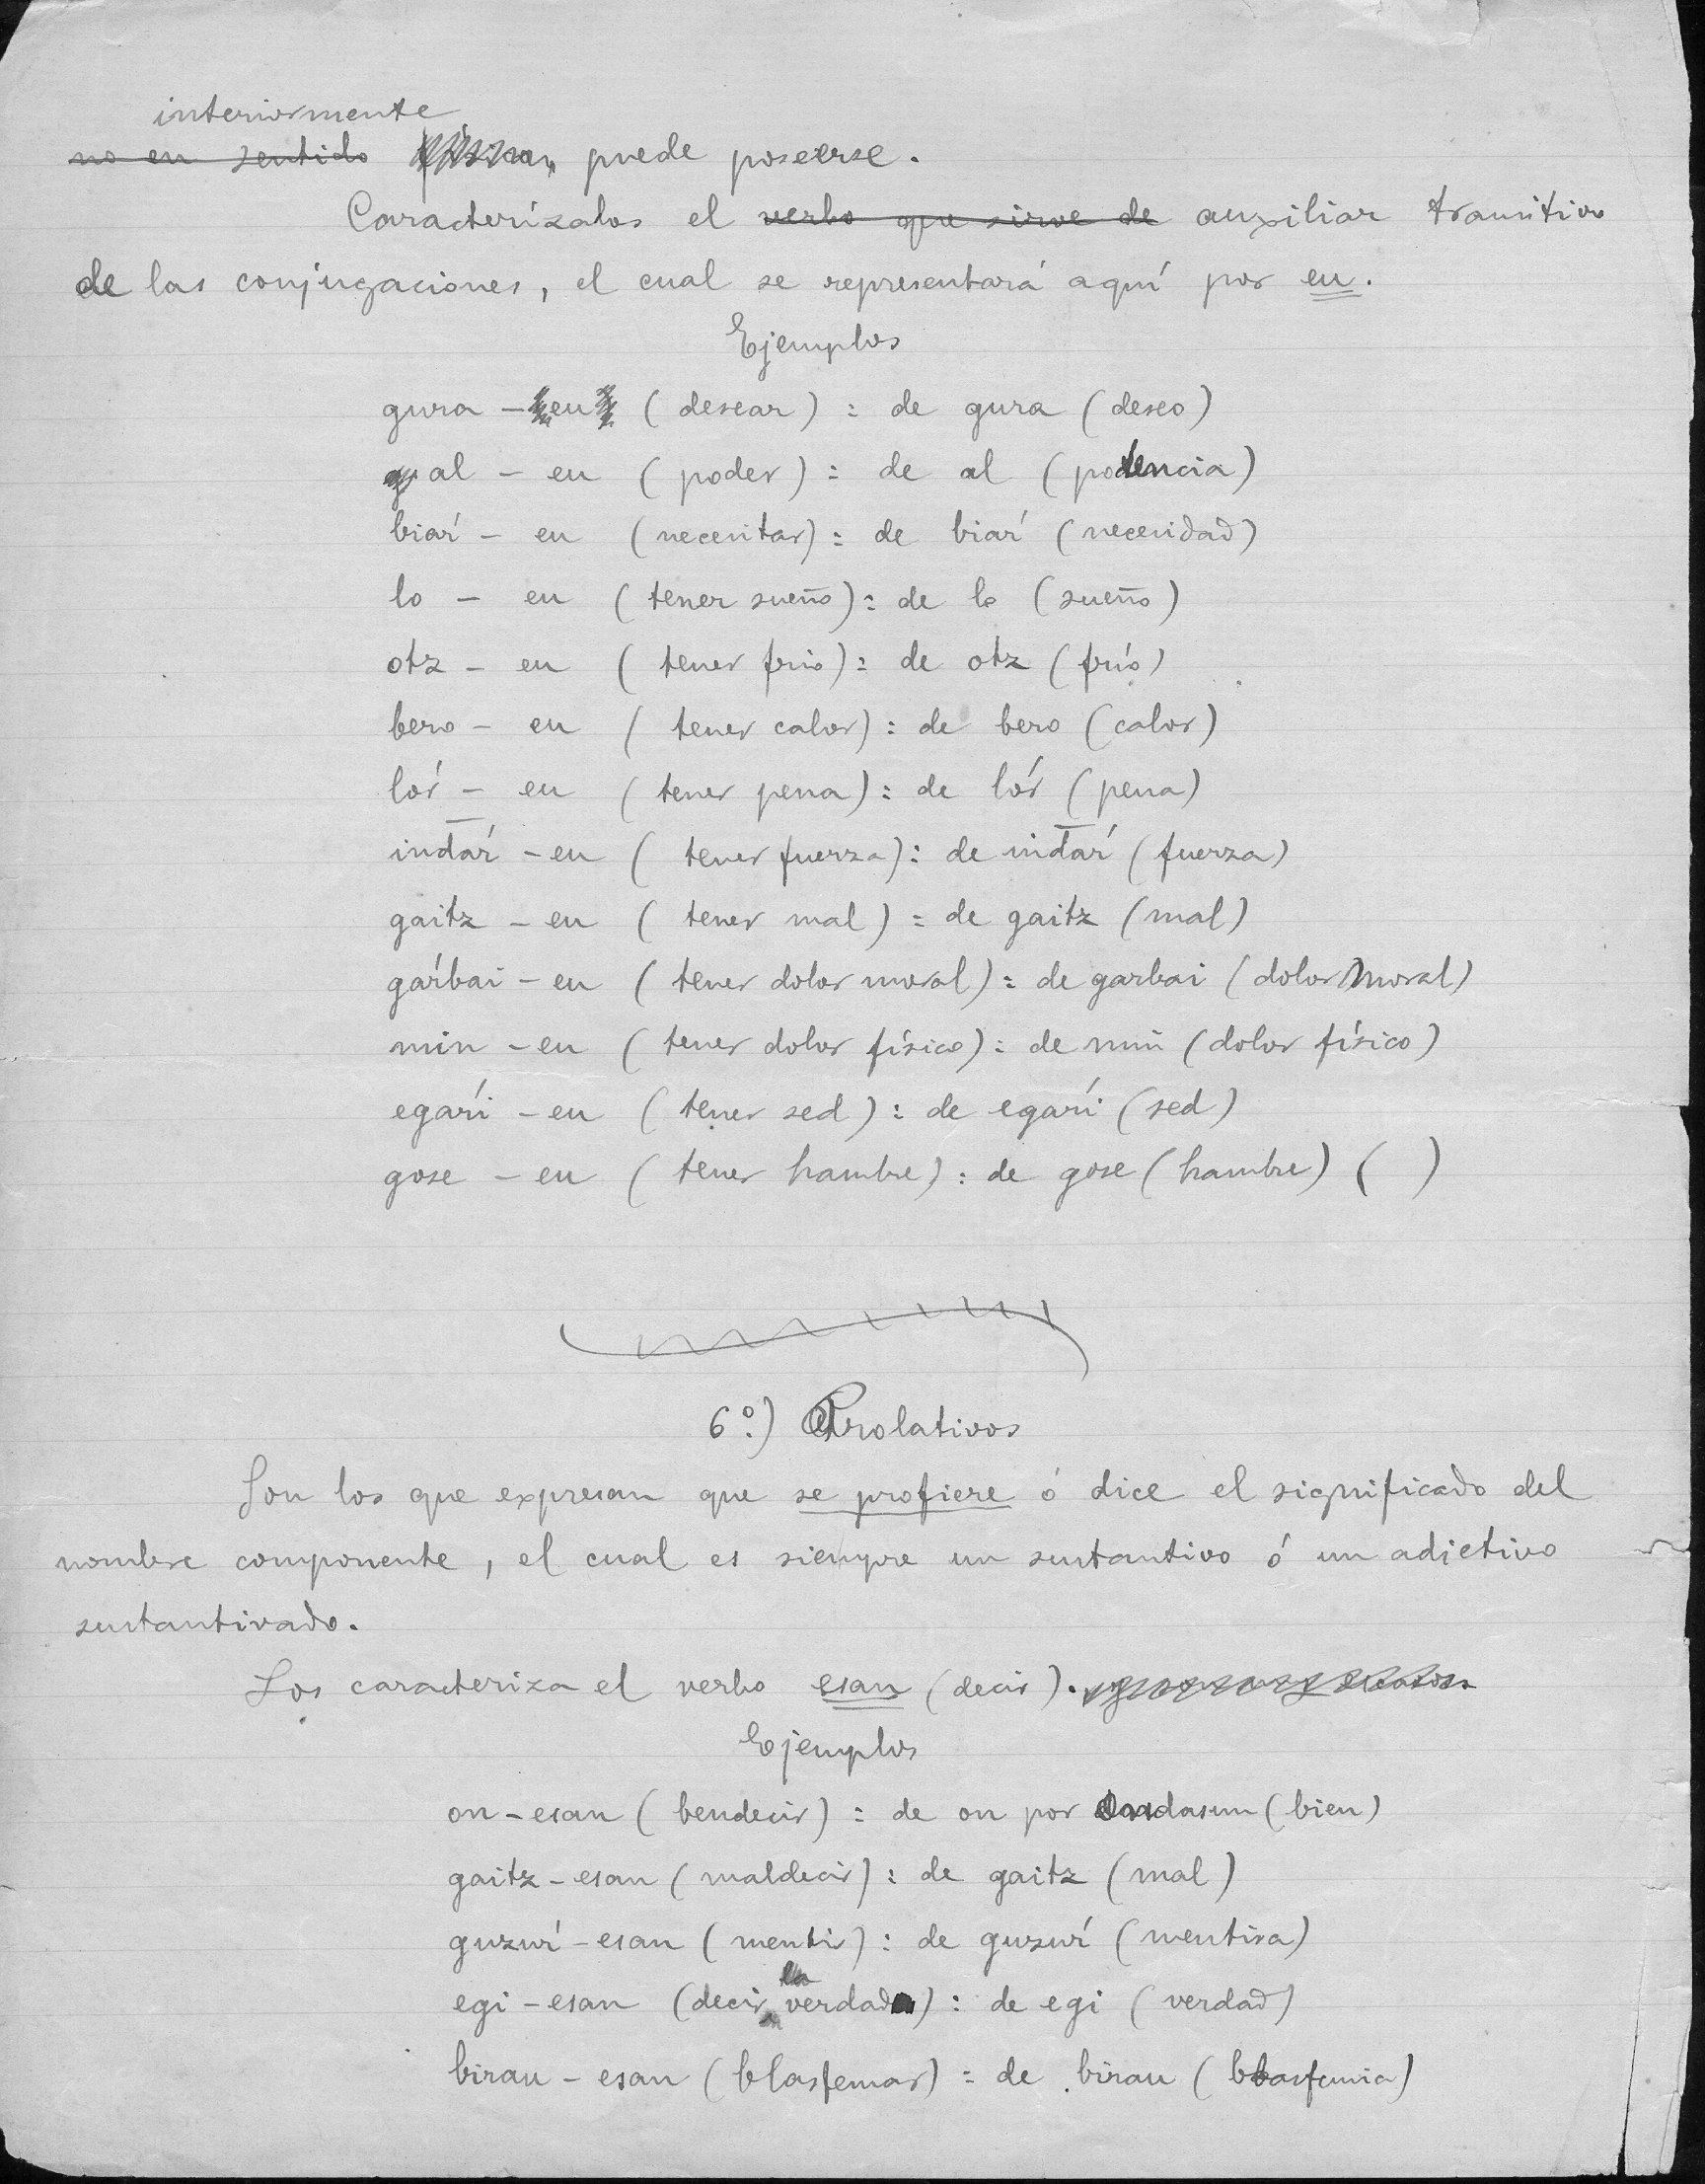 interiormente
no en sentido puede poseerse.
Caracterízalos el verbo que sirve de auxiliar transitivo
de las conjugaciones, el cual se representará aquí por eu.
Ejemplos
gura - eu (desear) : de gura (deseo)
al - eu (poder) : de al (potencia)
biaŕ - eu (necesitar) : de biaŕ (necesidad)
lo - eu (tener sueño) : de lo (sueño)
otz - eu (tener frio) : de otz (frío)
bero - eu (tener calor) : de bero (calor)
loŕ - eu (tener pena) : de loŕ (pena)
indt̄aŕ - eu (tener fuerza) : de indt̄aŕ (fuerza)
gaitz - eu (tener mal) : de gaitz (mal)
gaŕbai - eu (tener dolor moral) : de garbai (dolor moral)
min - eu (tener dolor físico) : de min (dolor físico)
egaŕi - eu (tener sed) : de egaŕi (sed)
gose - eu (tener hambre) : de gose (hambre) ( )
6º) Prolativos
Son los que expresan que se profiere ó dice el significado del
nombre componente, el cual es siempre un sustantivo ó un adjetivo
sustantivado.
Los caracteriza el verbo esan (decir).
Ejemplos
on - esan (bendecir) : de on por ondasun (bien)
gaitz - esan (maldecir) : de gaitz (mal)
guzuŕ - esan (mentir) : de guzuŕ (mentira)
egi - esan (decir la verdad) : de egi (verdad)
birau - esan (blasfemar) : de birau (blasfemia)